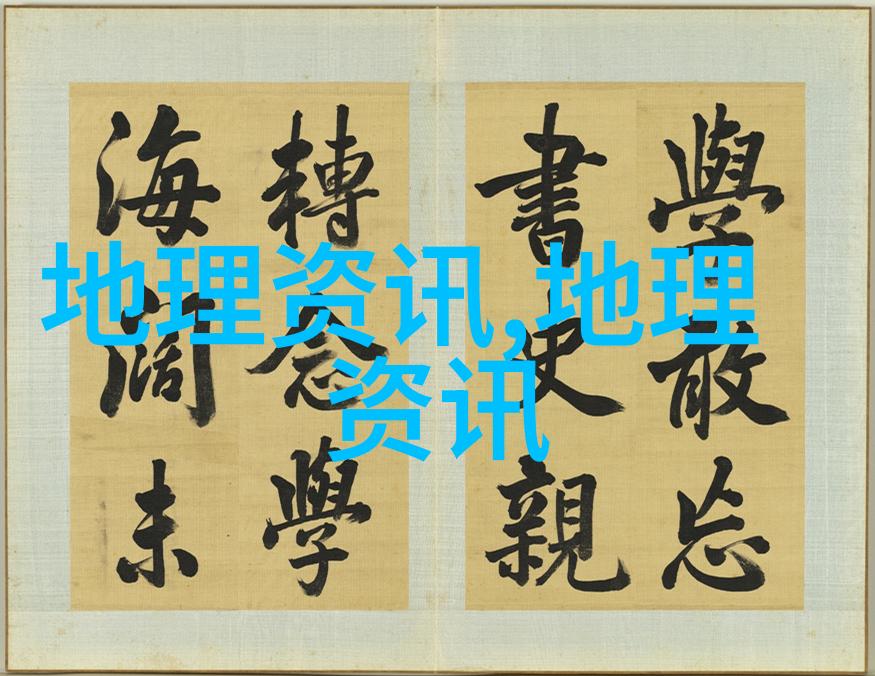 學敢忘
書史親
轉念學
海闊未
地理资讯,地理
资讯